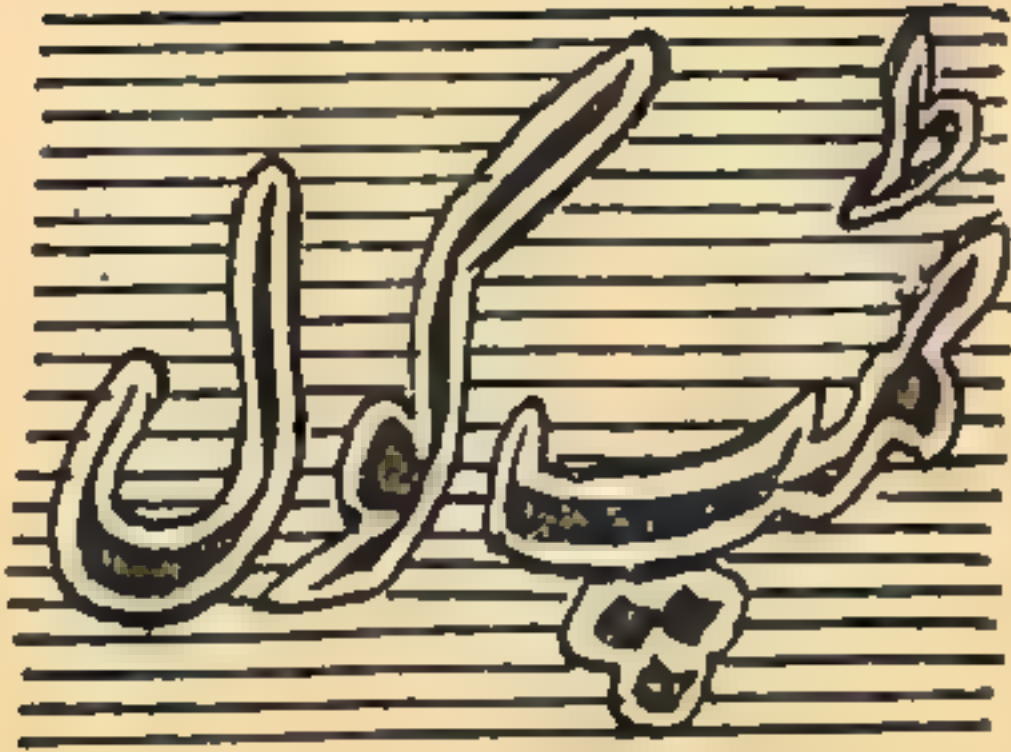 ٹمپ کول